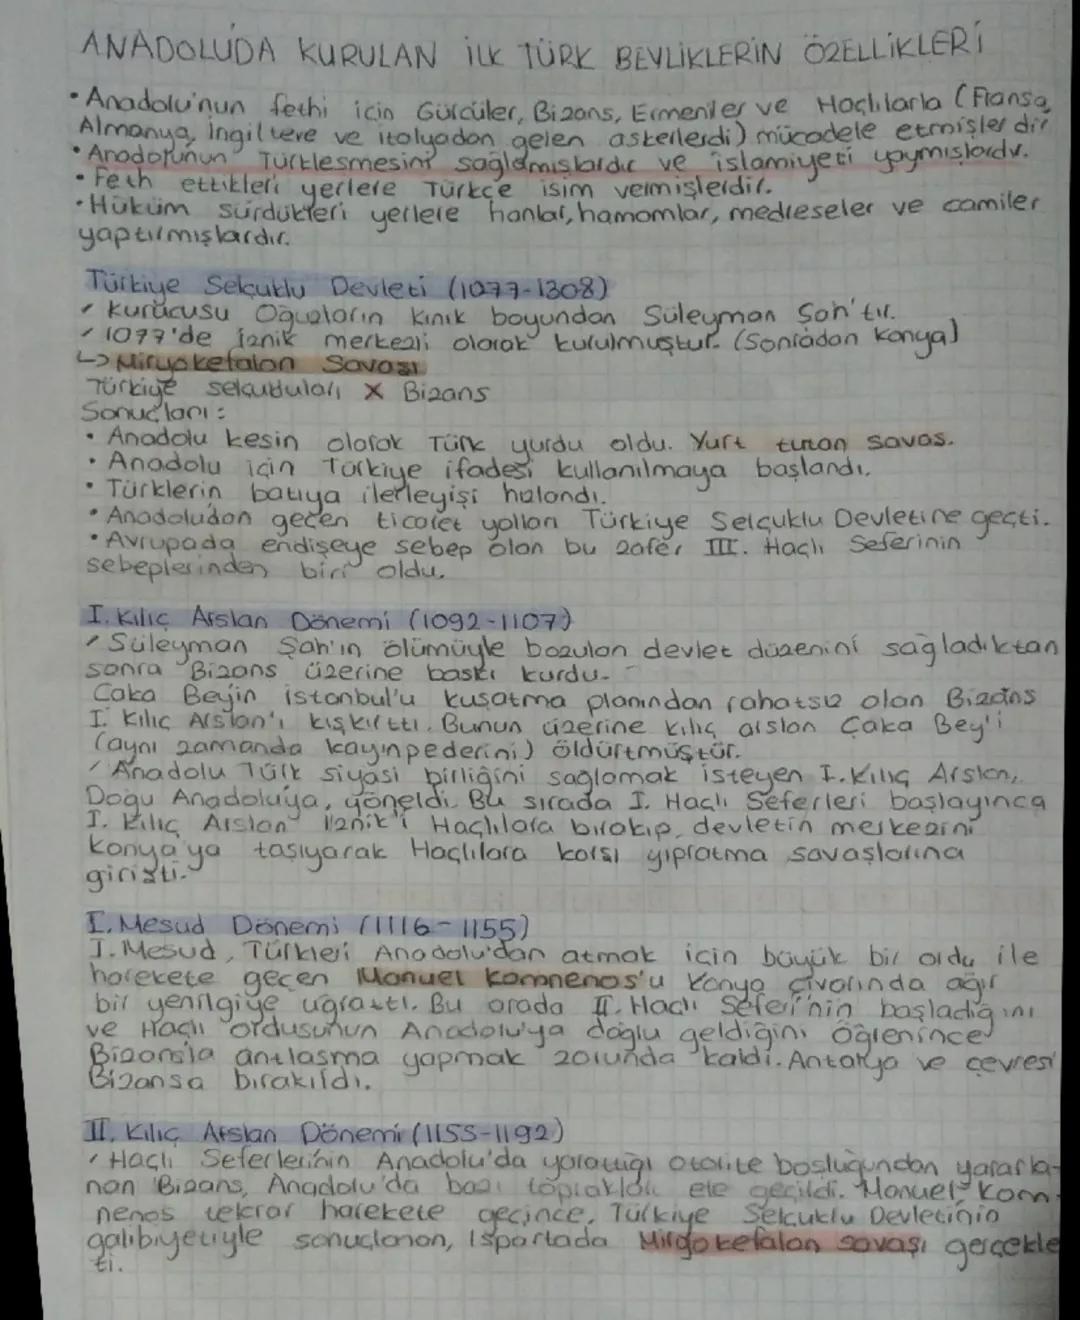 ANADOLU'DA KURULAN İLK TÜRK BEYLİKLERİN ÖZELLİKLERİ
• Anadolu'nun fethi için Gürcüler, Bizans, Ermeniler ve Haçlılarla (Fransa,
Almanya, İngiltere ve İtalyadan gelen askerlerdi) mücadele etmişlerdir.
• Anadolunun Türkleşmesini sağlamışlardır ve islamiyeti yaymışlardır.
• Feth ettikleri yerlere Türkçe isim vermişlerdir.
• Hüküm sürdükleri yerlere hanlar, hamamlar, medreseler ve camiler
yaptırmışlardır.
Türkiye Selçuklu Devleti (1077-1308)
✓ Kurucusu Oğuzların Kınık boyundan Süleyman Şah'tır.
✓ 1077'de İznik merkezli olarak kurulmuştur. (Sonradan Konya)
↳ Miryokefalon Savaşı
Türkiye selçukluları X Bizans
Sonuçları:
• Anadolu kesin olarak Türk yurdu oldu. Yurt tutan savaş.
• Anadolu için Türkiye ifadesi kullanılmaya başlandı.
• Türklerin batıya ilerleyişi hızlandı.
• Anadoludan geçen ticaret yolları Türkiye Selçuklu Devletine geçti.
• Avrupada endişeye sebep olan bu zafer III. Haçlı Seferinin
sebeplerinden biri oldu.
I. Kılıç Arslan Dönemi (1092-1107)
✓ Süleyman Şah'ın ölümüyle bozulan devlet düzenini sağladıktan
sonra Bizans üzerine baskı kurdu.
Çaka Beyin istanbul'u kuşatma planından rahatsız olan Bizans
I. Kılıç Arslan'ı kışkırttı. Bunun üzerine Kılıç arslan Çaka Bey'i
(aynı zamanda kayınpederini) öldürtmüştür.
✓ Anadolu Türk siyasi birliğini sağlamak isteyen I. Kılıç Arslan,
Doğu Anadolu'ya, yöneldi. Bu sırada I. Haçlı Seferleri başlayınca
I. Kılıç Arslan İznik'i Haçlılara bırakıp, devletin merkezini
Konya'ya taşıyarak Haçlılara karşı yıpratma savaşlarına
girişti.
I. Mesud Dönemi (1116-1155)
I. Mesud, Türkleri Anadolu'dan atmak için büyük bir ordu ile
harekete geçen Manuel Komnenos'u Konya civarında ağır
bir yenilgiye uğrattı. Bu arada II. Haçlı Seferi'nin başladığını
ve Haçlı ordusunun Anadolu'ya doğru geldiğini öğrenince
Bizansla antlaşma yapmak zorunda kaldı. Antakya ve çevresi
Bizansa bırakıldı.
II. Kılıç Arslan Dönemi (1155-1192)
✓ Haçlı Seferlerinin Anadolu'da yarattığı otorite boşluğundan yararla-
nan Bizans, Anadolu'da bazı toprakları ele geçildi. Manuel Kom-
nenos tekrar harekete geçince, Türkiye Selçuklu Devletinin
galibiyetiyle sonuçlanan, Ispartada Miryokefalon savaşı gerçekle
ti.